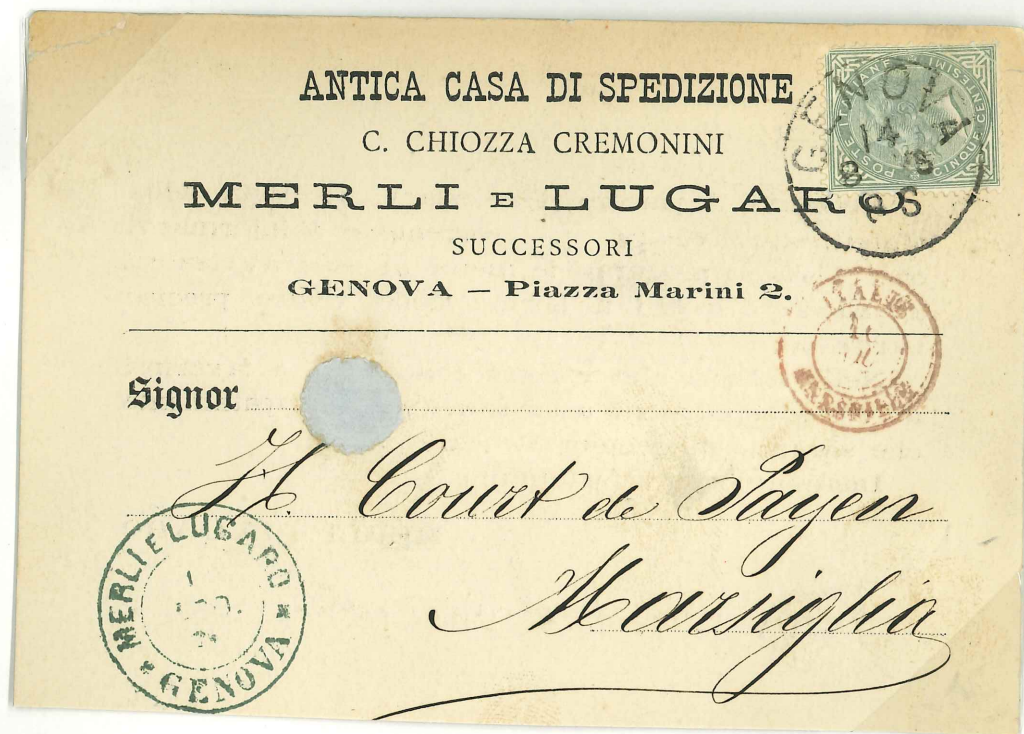 ANTICA CASA DI SPEDIZIONE
C. CHIOZZA CREMONINI
MERLI E LUGARO
SUCCESSORI
GENOVA — Piazza Marini 2.
POSTE ITALIANE
CINQUE CENTESIMI
GENOVA
14
8 S
ITALIE
MARSEILLE
Signor
H. Court de Payen
Marsiglia
MERLI E LUGARO
GENOVA